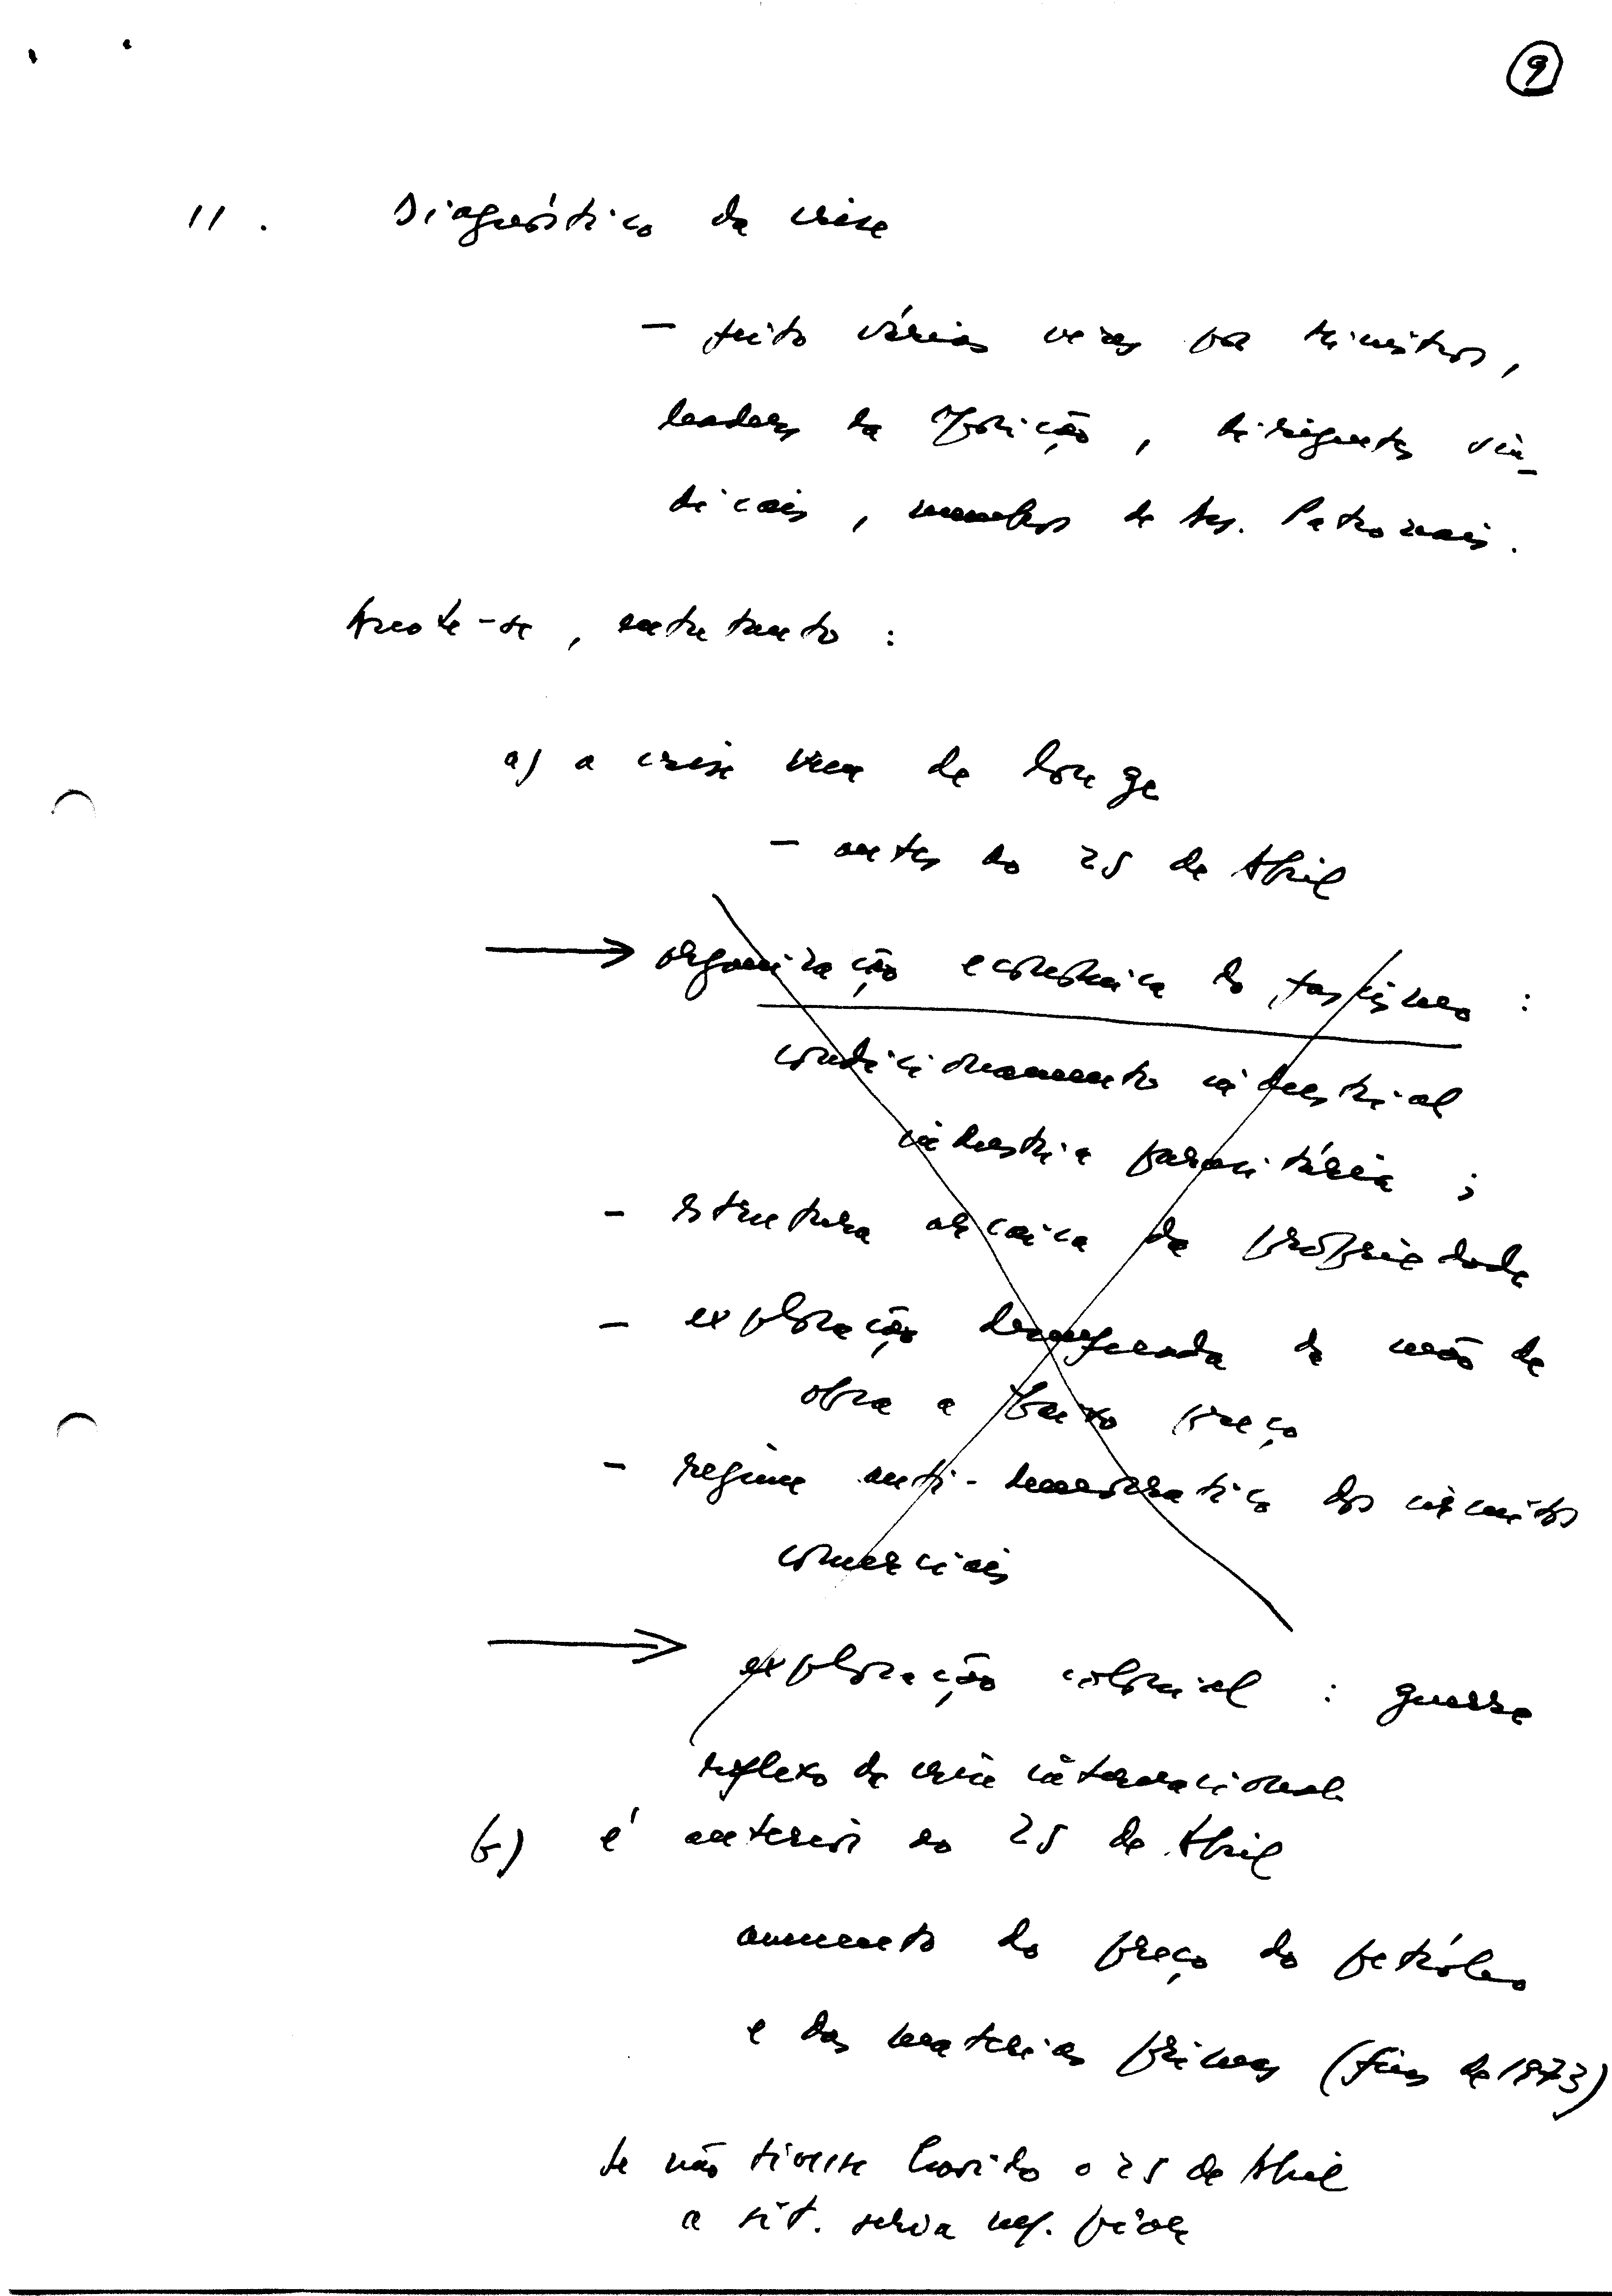 9
11. Diagnóstico da crise
- feito várias vezes por ministros,
leaders da oposição, dirigentes sin-
dicais, membros de Ass. Patronais.
Anote-se, entretanto:
a) a crise vem de longe
- antes do 25 de Abril
→ organização económica do fascismo:
condicionamento industrial
indústria parasitária;
- estrutura arcaica da propriedade
- exploração desenfreada da mão de
obra a baixo preço
- regime anti-democrático dos circuitos
comerciais
→ exploração colonial: guerra
reflexo da crise internacional
b) é anterior ao 25 de Abril
aumento do preço do petróleo
e das matérias primas (fins de 1973)
se não tivesse havido o 25 de Abril
a sit. seria pior